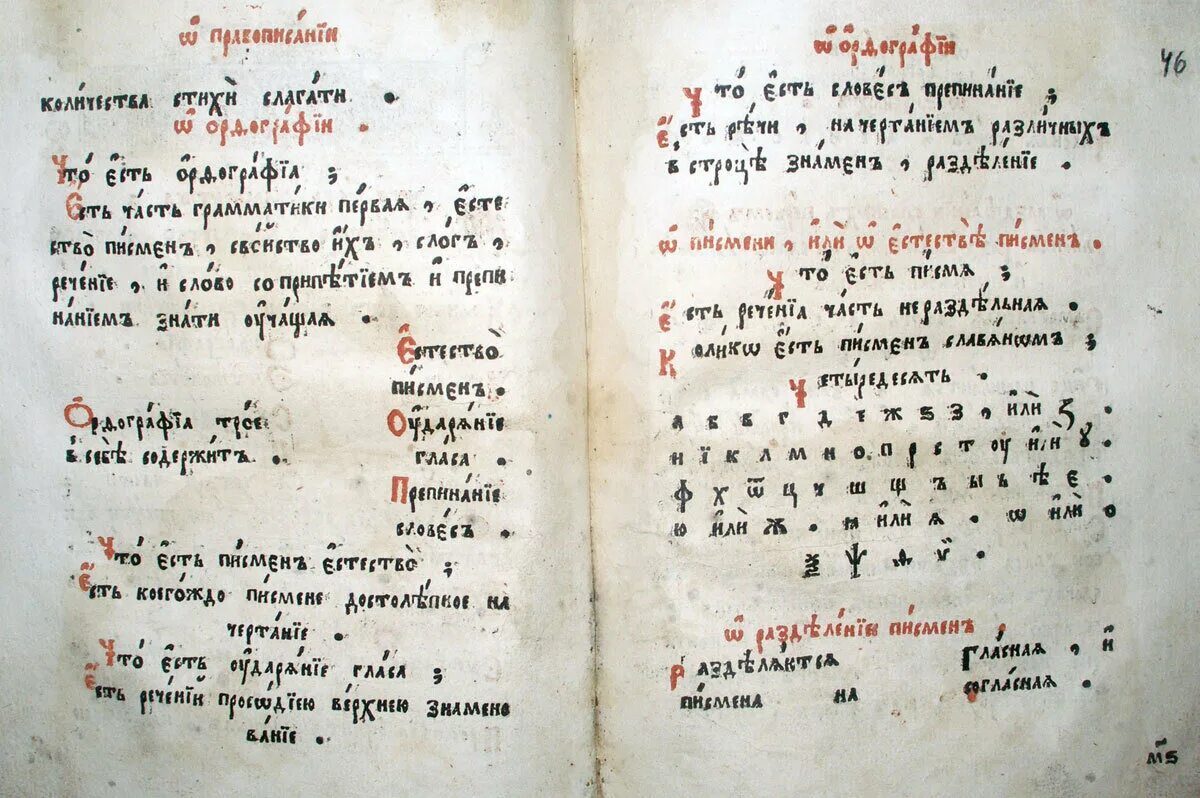 Ѡ҆ правописа́нїи
коли́чества стихѝ слага́ти .
Ѡ҆ ѻ҆рѳогра́фїи .
Что́ є҆́сть ѻ҆рѳогра́фїа ;
Є҆́сть ча́сть грамма́тики пе́рвая , є҆сте
ство̀ пи́сменъ , сво́йство и҆́хъ , сло́гъ ,
рече́нїе , и҆ сло́во со припѣ́тїемъ и҆ препи
на́нїемъ зна́ти ᲂу҆ча́щая .
Є҆стество̀
пи́сменъ .
Ѻ҆рѳогра́фїа тро́е
в̾ себѣ̀ содержи́тъ .
Оу҆даре́нїе
гла́са .
Препина́нїе
слове́съ .
Что́ є҆́сть пи́сменъ є҆стество̀ ;
Є҆́сть коего́ждо пи́смене достолѣ́пное на
черта́нїе .
Что́ є҆́сть ᲂу҆даре́нїе гла́са ;
Є҆́сть рече́нїй просѡ́дїею ве́рхнею зна́мено
ва́нїе .
Ѡ҆ ѻ҆рѳогра́фїи
46
Что́ є҆́сть слове́съ препина́нїе ;
Є҆́сть рѣ́чи , начерта́нїемъ разли́чныхъ
в̾ строцѣ̀ зна́менъ , раздѣле́нїе .
Ѡ҆ пи́смени , и҆лѝ ѡ҆ є҆стествѣ̀ пи́сменъ .
Что́ є҆́сть пи́смѧ ;
Є҆́сть рече́нїа ча́сть нераздѣ́льная .
Коли́кѡ є҆́сть пи́сменъ славѧ́нѡмъ ;
Четы́редесѧть .
а б в г д е ж ѕ з , и҆лѝ ꙁ .
и ї к л м н о п р с т ᲂу и҆лѝ ꙋ .
ф х ѿ ц ч ш щ ъ ы ь ѣ є .
ю и҆лѝ ѫ . ꙗ и҆лѝ ѧ . ѡ и҆лѝ о
ѯ ѱ ѳ ѵ .
Ѡ҆ раздѣле́нїи пи́сменъ .
Раздѣлѧ́ютсѧ
пи́смена на
гла́сная , и҆
согла́сная .
м҃ѕ